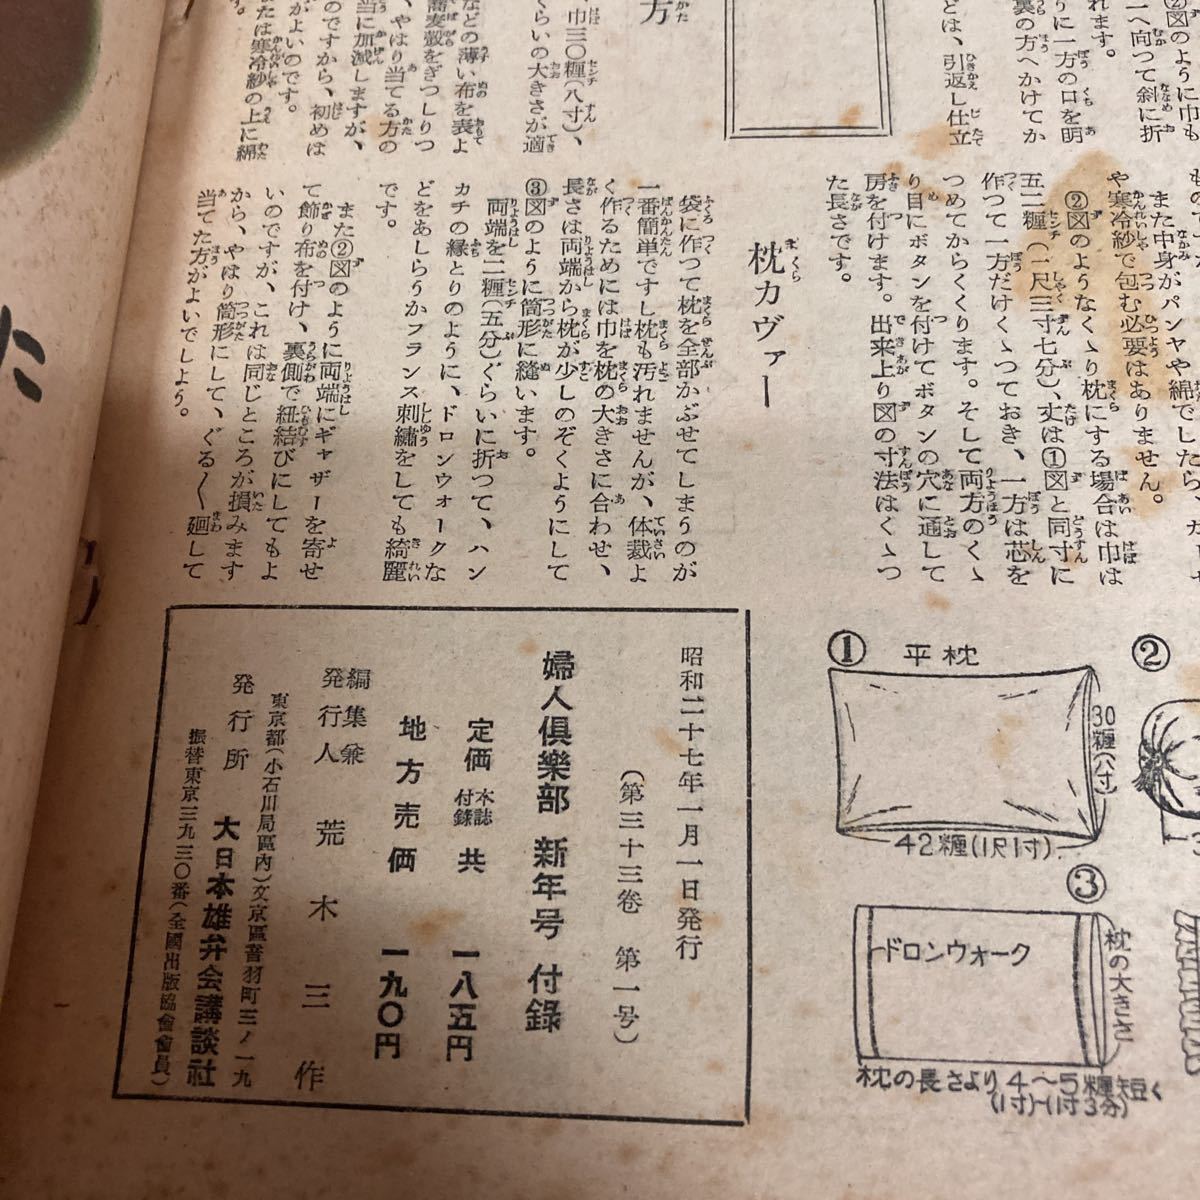 ②図のように巾も
一へ向つて斜に折
れます。
りに一方の口を明
裏の方へかけてか
どは、引返し仕立
方
巾三〇糎(八寸)、
くらいの大きさが適
などの薄い布を表よ
蕎麦殻をぎつしりつ
や、やはり当てる方の
当に加減しますが、
のですから、初めは
がよいのです。
または寒冷紗の上に綿
また中身がパンヤや綿でしたら
や寒冷紗で包む必要はありません。
②図のようなくゝり枕にする場合は巾は
五二糎(一尺三寸七分)、丈は①図と同寸に
作つて一方だけくゝつておき、一方は芯を
つめてからくくります。そして両方のくゝ
り目にボタンを付けてボタンの穴に通して
房を付けます。出来上り図の寸法はくゝつ
た長さです。
枕カヴァー
袋に作つて枕を全部かぶせてしまうのが
一番簡単ですし枕も汚れませんが、体裁よ
く作るためには巾を枕の大きさに合わせ、
長さは両端から枕が少しのぞくようにして
③図のように筒形に縫います。
両端を二糎(五分)ぐらいに折つて、ハン
カチの縁とりのように、ドロンウォークな
どをあしらうかフランス刺繡をしても綺麗
です。
また②図のように両端にギャザーを寄せ
て飾り布を付け、裏側で紐結びにしてもよ
いのですが、これは同じところが損みます
から、やはり筒形にして、ぐる〱廻して
当てた方がよいでしよう。
① 平枕
30糎(八寸)
42糎(1尺1寸)
②
③
ドロンウォーク
枕の大きさ
枕の長さより4〜5糎短く
(1寸)〜(1寸3分)
昭和二十七年一月一日発行
(第三十三巻 第一号)
婦人倶楽部 新年号 付録
定価 本誌付録共 一八五円
地方売価 一九〇円
編集兼発行人 荒木三作
東京都(小石川局區内)文京區音羽町三ノ一九
発行所 大日本雄弁会講談社
振替東京三九三〇番(全國出版協會會員)